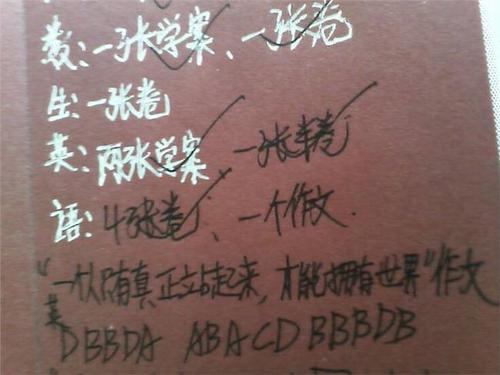 数:一张学案、一张卷
生:一张卷
英:两张学案 一张卷
语:4张卷、一个作文.
"一个人只有真正立起来,才能拥有世界"作文
英
DBBDA ABACD BBBDB